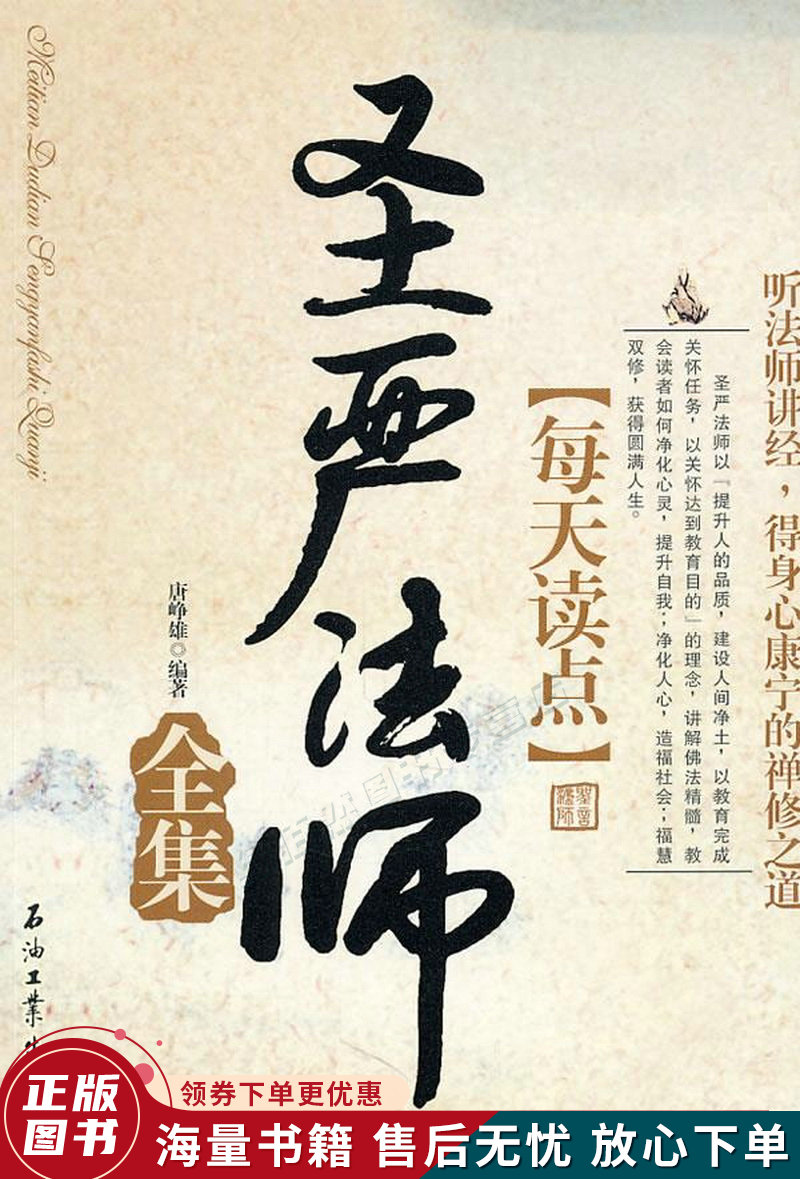 听法师讲经，得身心康宁的禅修之道
圣严法师以『提升人的品质，建设人间净土，以教育完成
关怀任务，以关怀达到教育目的』的理念，讲解佛法精髓，教
会读者如何净化心灵，提升自我；净化人心，造福社会；福慧
双修，获得圆满人生。
【每天读点】
圣严法师
全集
唐峥雄◎编著
石油工业
Meitian Dudian Sengyanfashi Quanji
正版
图书
领券下单更优惠
海量书籍 售后无忧 放心下单